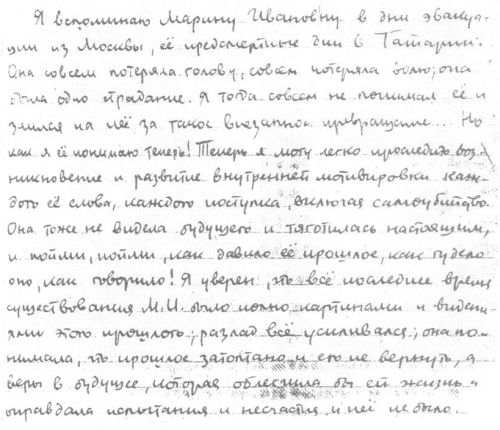 Я вспоминаю Марину Ивановну в дни эвакуа-
ции из Москвы, её предсмертные дни в Татарии.
Она совсем потеряла голову, совсем потеряла волю; она
была одно страдание. Я тогда совсем не понимал её и
злился на неё за такое внезапное превращение... Но
как я её понимаю теперь! Теперь я могу легко проследить воз-
никновение и развитие внутренней мотивировки каж-
дого её слова, каждого поступка, включая самоубийство.
Она тоже не видела будущего и тяготилась настоящим,
и пойми, пойми, как давило её прошлое, как гудело
оно, как говорило! Я уверен, что всё последнее время
существования М.И. было полно картинами и видени-
ями этого прошлого; разлад всё усиливался; она по-
нимала, что прошлое затоптано и его не вернуть, а
веры в будущее, которая облегчила бы ей жизнь и
оправдала испытания и несчастия, у неё не было.